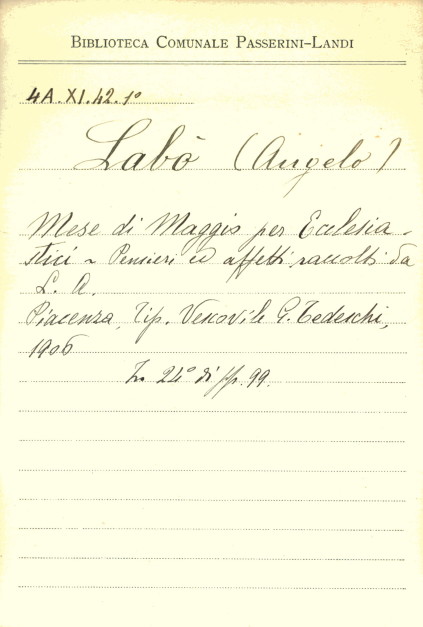 BIBLIOTECA COMUNALE PASSERINI-LANDI
4A.XI.42.1º
Labò (Angelo)
Mese di Maggio per Ecclesia-
stici ~ Pensieri ed affetti raccolti da
L. A.
Piacenza, Tip. Vescovile G. Tedeschi,
1906
In 24º di pp. 99.